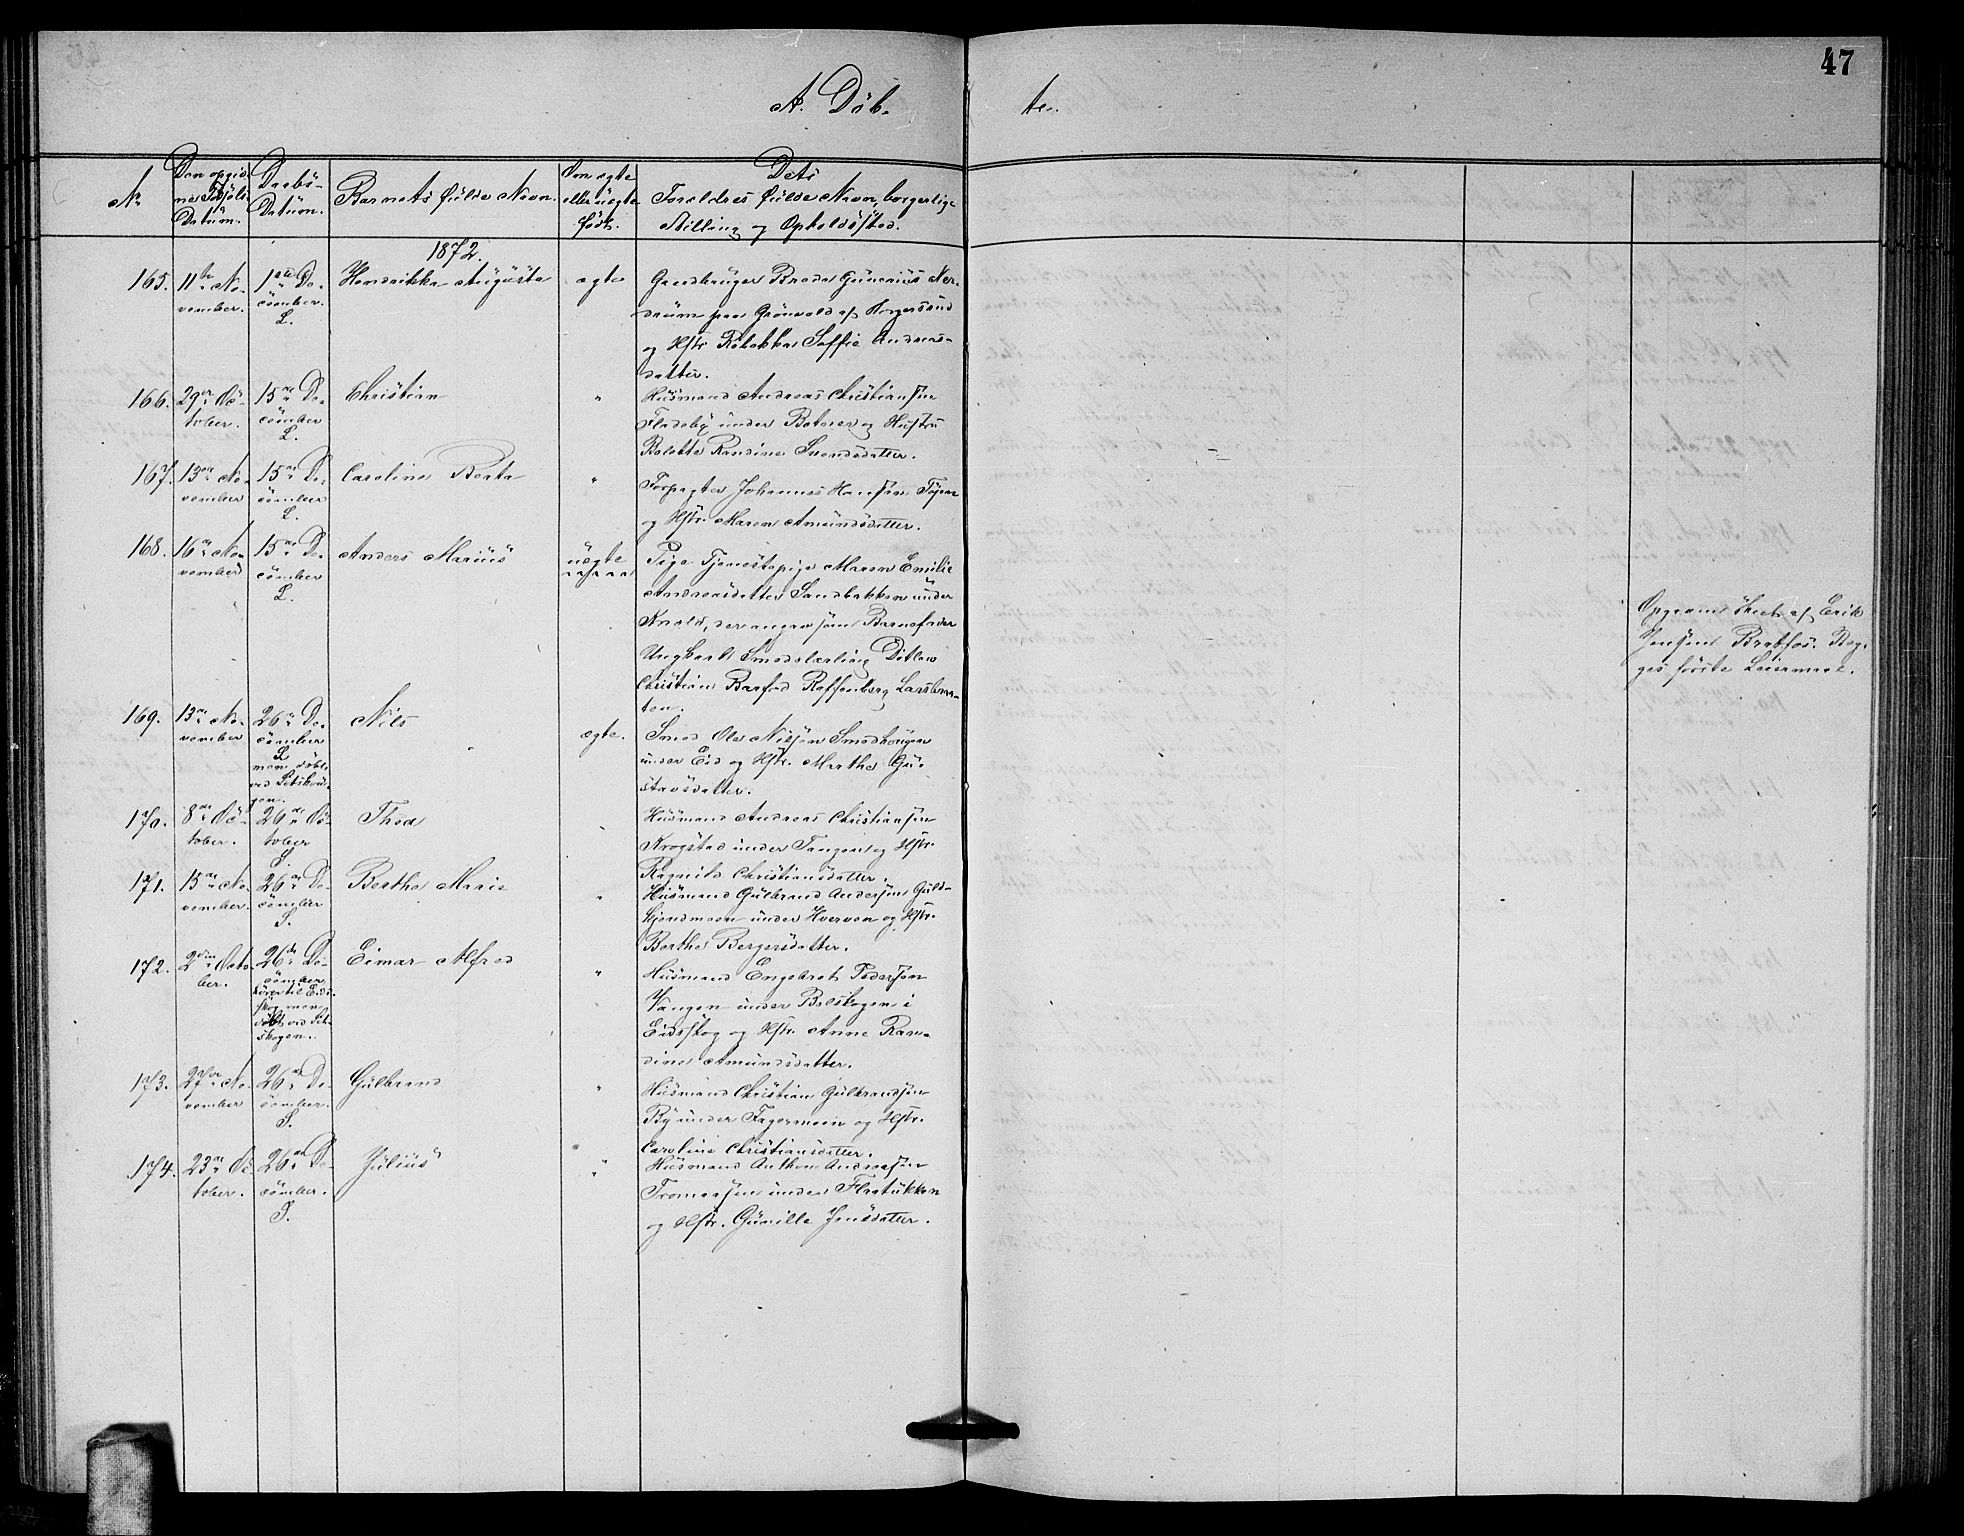 47
A. Döb-
te.
No
Den opgid-
ne Födsels
Datum.
Daabs-
Datum.
Barnets fulde Navn.
Om ægte
eller uægte
født.
Dets
Forældres fulde Navn, borgerlige
Stilling og Opholdssted.
1872.
165. 11te No-
vember.
1ste De-
cember.
L.
Hendrikka Augusta
ægte
Gaardbruger Brede Gunerius Ner-
drum paa Grönvold af
og Hstr. Rebekka Soffie Andreas-
datter.
166. 29de Oc-
tober.
15de De-
cember
L.
Christian
"
Husmand Andreas Christiansen
Fladeby under Botner og Hustru
Bolette Randine Svendsdatter.
167. 13de No-
vember
15de De-
cember
L.
Caroline Berta
"
Forpagter Johannes Hansen Töien
og Hstr. Maren Amundsdatter.
168. 16de No-
vember
15de De-
cember
L.
Anders Marius
uægte
Pige Tjenestepige Maren Emilie
Andreasdatter Sandbakken under
Knold, der angav som Barnefader
Ungkarl Smedelærling Ditlew
Christian Barfod Raffenberg Larsbraa-
ten.
Opgivne Skeet af Erik
Jensen Bratfos. Beg-
ges første Leiermaal.
169. 13de No-
vember
26de De-
cember
L
men döbt
ved Setskou-
gen.
Nils
ægte.
Smed Ole Nilsen Smedhougen
under Eid og Hstr. Marthe Gu-
stavsdatter.
170. 8de Oc-
tober.
26de Oc-
tober
S
Thea
Husmand Andreas Christiansen
Krogstad under Tangen og Hstr.
Ragnild Christiansdatter.
171. 15de No-
vember.
26de De-
cember
S.
Berthe Marie
"
Husmand Gulbrand Andersen Guld-
skjendmoen under Hverven og Hstr.
Berthe Bergersdatter.
172. 2den Octo-
ber.
26de De-
cember
hörer til Eids-
skog men
döbt ved Set-
skogen.
Eimar Alfred
"
Husmand Engebret Pedersen
Vangen under Bolskogen i
Eidsskog og Hstr. Anne Ran-
dine Amundsdatter.
173. 27de No-
vember
26de De-
cember.
S.
Gulbrand
"
Husmand Christian Gulbrandsen
By under Fagermoen og Hstr.
Caroline Christiansdatter.
174. 23de Oc-
tober.
26de De-
cember.
S.
Julius
"
Husmand Anthon Andreasen
Tromaasen under Flatukken
og Hstr. Gunille Jensdatter.